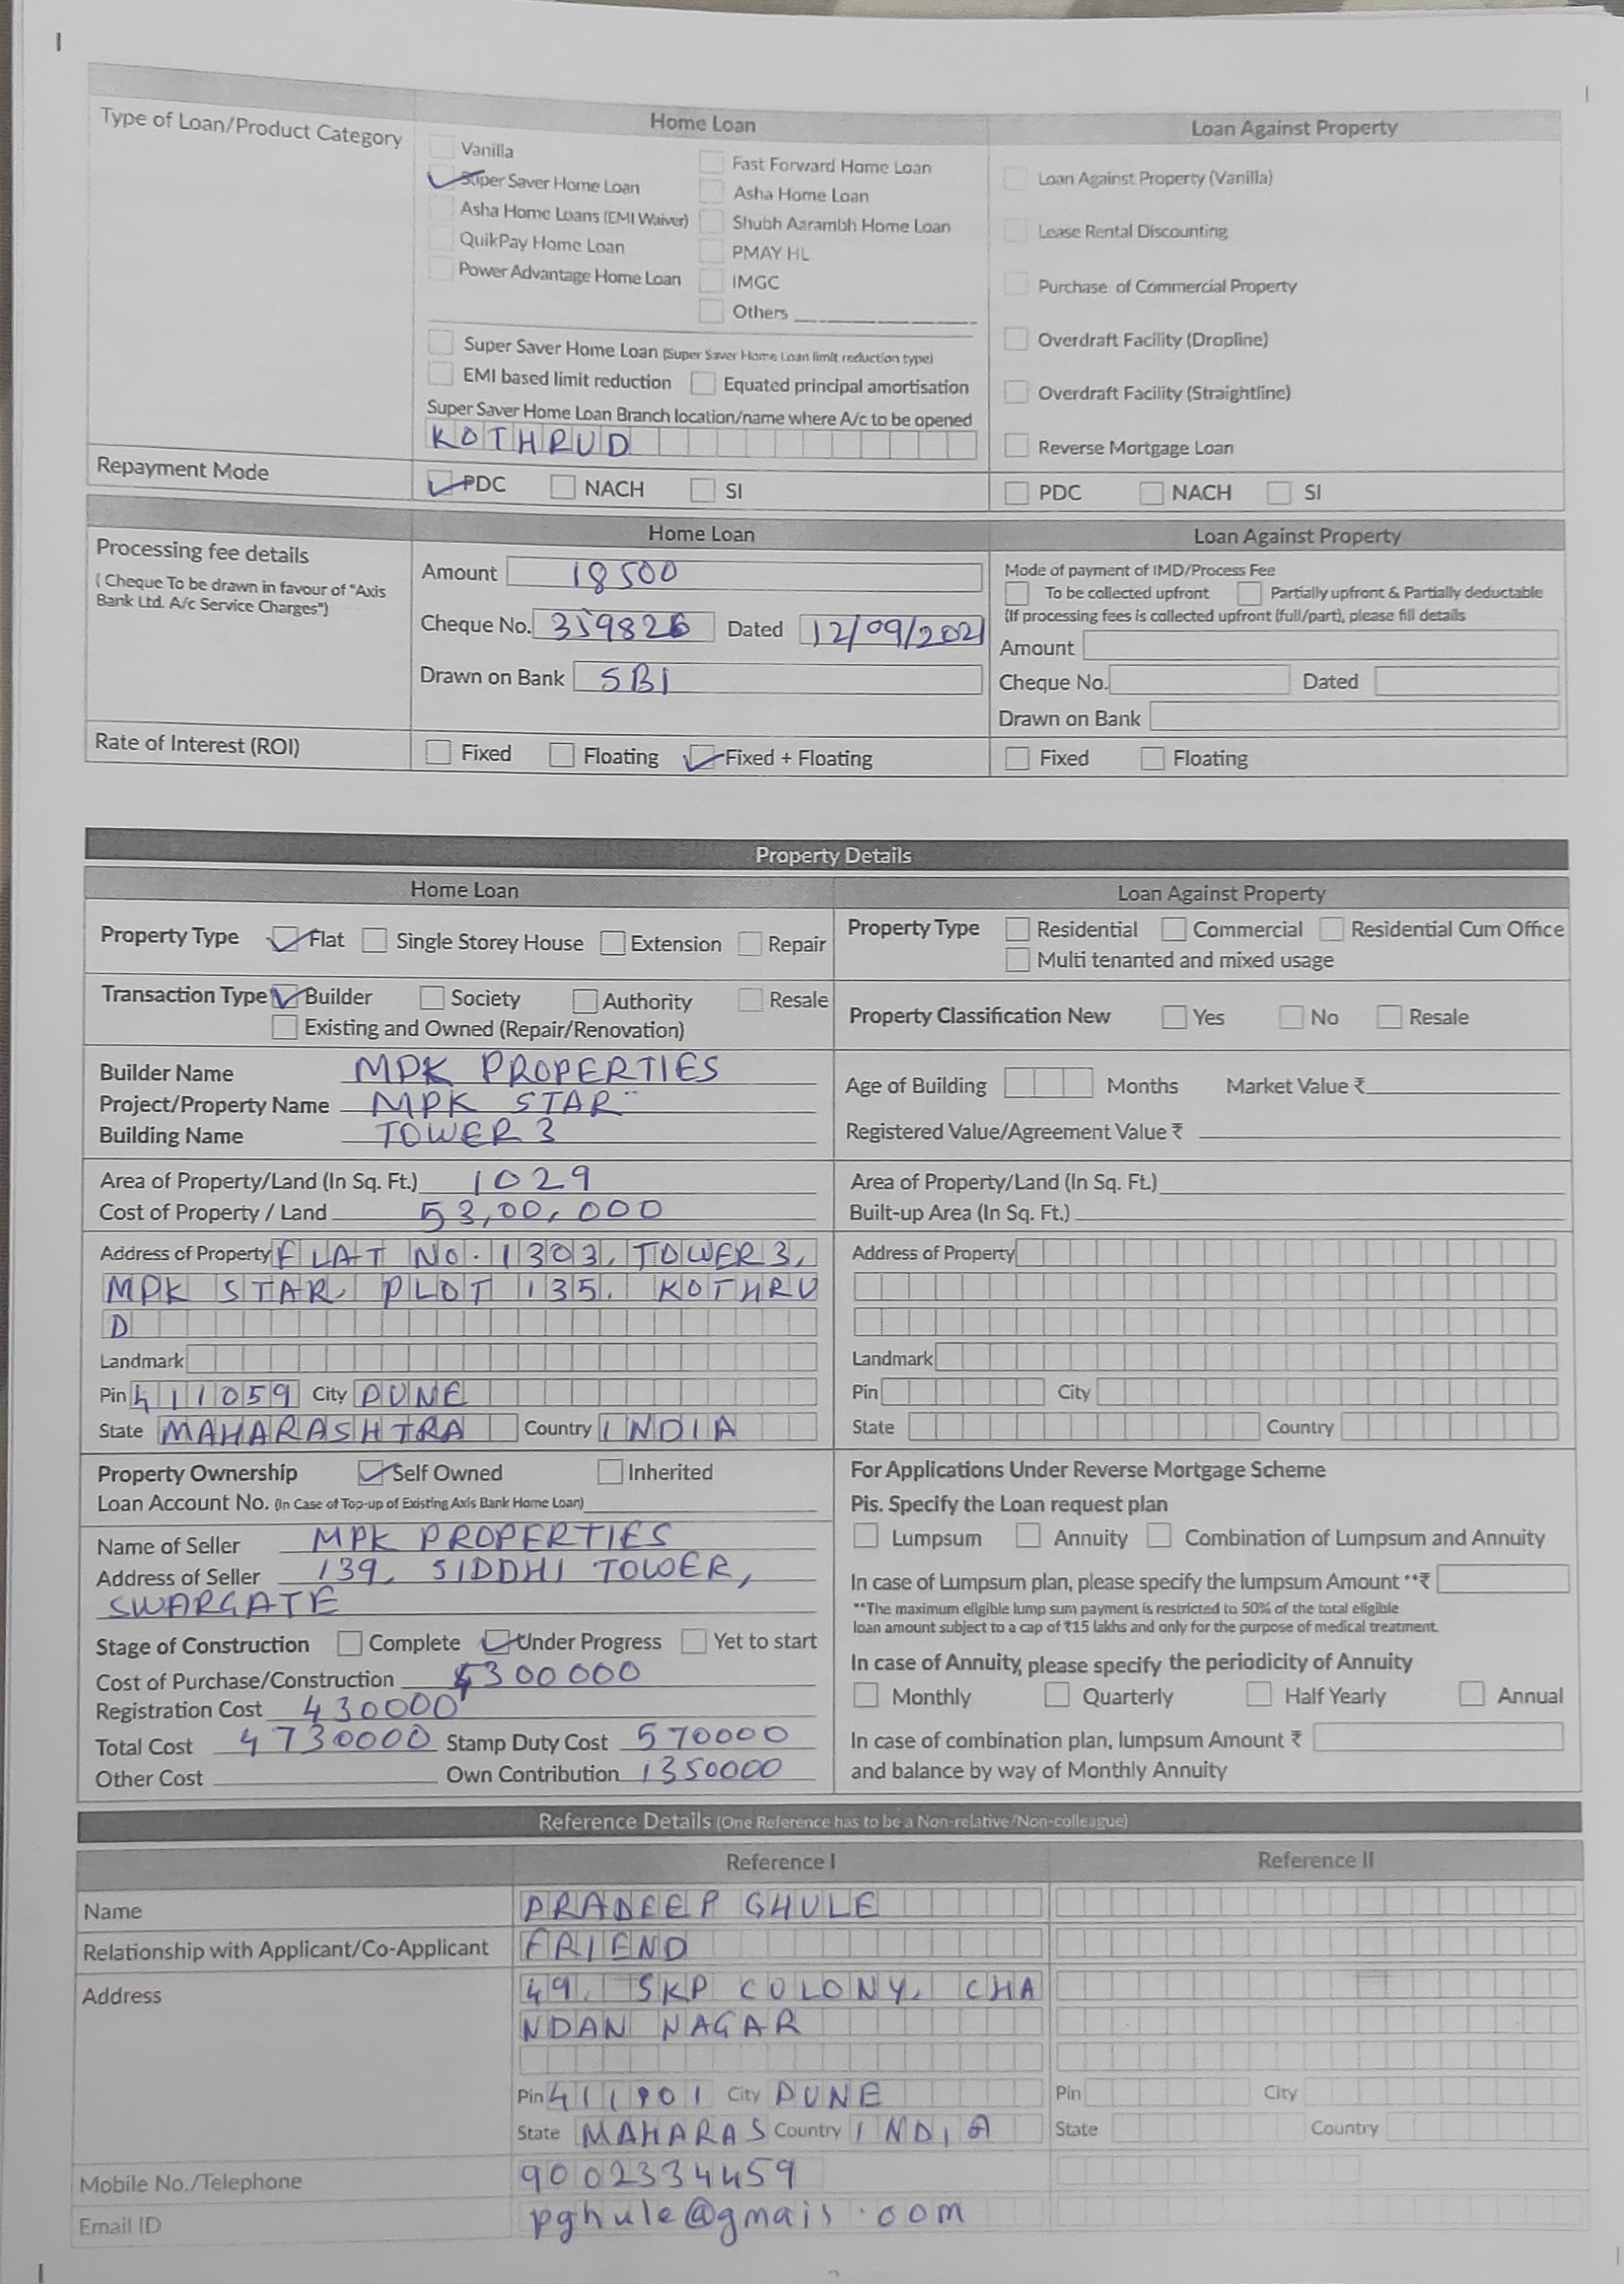 Home Loan Loan Against Property
Type of Loan/Product Category
Vanilla Fast Forward Home Loan Loan Against Property (Vanilla)
Super Saver Home Loan Asha Home Loan
Asha Home Loans (EMI Waiver) Shubh Aarambh Home Loan Lease Rental Discounting
QuikPay Home Loan PMAY HL
Power Advantage Home Loan IMGC Purchase of Commercial Property
Others
Super Saver Home Loan (Super Saver Home Loan limit reduction type) Overdraft Facility (Dropline)
EMI based limit reduction Equated principal amortisation Overdraft Facility (Straightline)
Super Saver Home Loan Branch location/name where A/c to be opened
KOTHRUD Reverse Mortgage Loan
Repayment Mode PDC NACH SI PDC NACH SI
Home Loan Loan Against Property
Processing fee details
( Cheque To be drawn in favour of "Axis
Bank Ltd. A/c Service Charges")
Amount 18500
Cheque No. 359826 Dated 12/09/2021
Drawn on Bank SBI
Mode of payment of IMD/Process Fee
To be collected upfront Partially upfront & Partially deductable
(If processing fees is collected upfront (full/part), please fill details
Amount
Cheque No. Dated
Drawn on Bank
Rate of Interest (ROI) Fixed Floating Fixed + Floating Fixed Floating
Property Details
Home Loan Loan Against Property
Property Type Flat Single Storey House Extension Repair
Transaction Type Builder Society Authority Resale
Existing and Owned (Repair/Renovation)
Builder Name MPK PROPERTIES
Project/Property Name MPK STAR
Building Name TOWER 3
Area of Property/Land (In Sq. Ft.) 1029
Cost of Property / Land 53,00,000
Address of Property FLAT No. 1303, TOWER3,
MPK STAR, PLOT 135, KOTHRU
D
Landmark
Pin 411059 City PUNE
State MAHARASHTRA Country INDIA
Property Ownership Self Owned Inherited
Loan Account No. (In Case of Top-up of Existing Axis Bank Home Loan)
Name of Seller MPK PROPERTIES
Address of Seller 139, SIDDHI TOWER,
SWARGATE
Stage of Construction Complete Under Progress Yet to start
Cost of Purchase/Construction 4300000
Registration Cost 430000
Total Cost 4730000 Stamp Duty Cost 570000
Other Cost Own Contribution 1350000
Property Type Residential Commercial Residential Cum Office
Multi tenanted and mixed usage
Property Classification New Yes No Resale
Age of Building Months Market Value ₹
Registered Value/Agreement Value ₹
Area of Property/Land (In Sq. Ft.)
Built-up Area (In Sq. Ft.)
Address of Property
Landmark
Pin City
State Country
For Applications Under Reverse Mortgage Scheme
Pls. Specify the Loan request plan
Lumpsum Annuity Combination of Lumpsum and Annuity
In case of Lumpsum plan, please specify the lumpsum Amount **₹
**The maximum eligible lump sum payment is restricted to 50% of the total eligible
loan amount subject to a cap of ₹15 lakhs and only for the purpose of medical treatment.
In case of Annuity, please specify the periodicity of Annuity
Monthly Quarterly Half Yearly Annual
In case of combination plan, lumpsum Amount ₹
and balance by way of Monthly Annuity
Reference Details (One Reference has to be a Non-relative/Non-colleague)
Reference I Reference II
Name PRADEEP GHULE
Relationship with Applicant/Co-Applicant FRIEND
Address 49, SKP COLONY, CHA
NDAN NAGAR
Pin 411901 City PUNE Pin City
State MAHARAS Country INDIA State Country
Mobile No./Telephone 9002334459
Email ID pghule@gmail.com